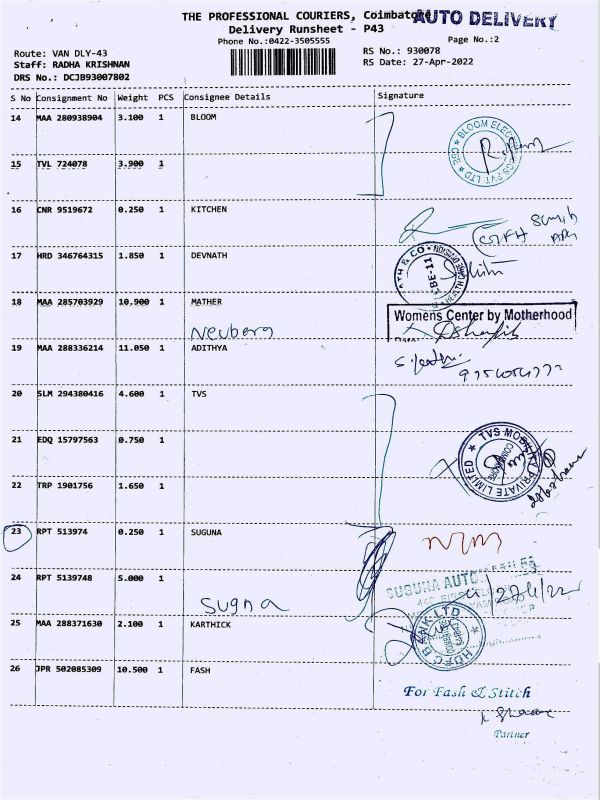 THE PROFESSIONAL COURIERS, Coimbatore
AUTO DELIVERY
Delivery Runsheet - P43
Phone No.:0422-3505555
Page No.:2
Route: VAN DLY-43
RS No.: 930078
Staff: RADHA KRISHNAN
RS Date: 27-Apr-2022
DRS No.: DCJB93007802
S No Consignment No Weight PCS Consignee Details Signature
14 MAA 280938904 3.100 1 BLOOM
BLOOM ELEC
PVT. LTD
CBE
15 TVL 724078 3.900 1
16 CNR 9519672 0.250 1 KITCHEN
17 HRD 346764315 1.850 1 DEVNATH
ATH & CO
18 MAA 285703929 10.900 1 MATHER
Womens Center by Motherhood
Neuberg
19 MAA 288336214 11.050 1 ADITHYA
20 SLM 294380416 4.600 1 TVS
21 EDQ 15797563 0.750 1
TVS MOBILITY PRIVATE LIMITED
COIMBATORE
22 TRP 1901756 1.650 1
23 RPT 513974 0.250 1 SUGUNA
24 RPT 5139748 5.000 1
SUGUNA AUTO
27/4/22
Sugna
25 MAA 288371630 2.100 1 KARTHICK
HDFC BANK LTD
26 JPR 502085309 10.500 1 FASH
For Fash & Stitch
Partner